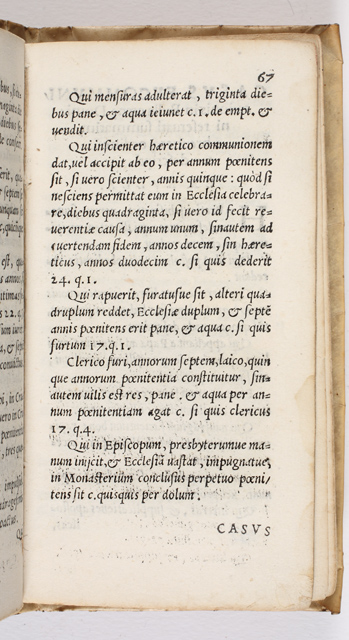 67
Qui mensuras adulterat, triginta die-
bus pane, & aqua ieiunet c. 1. de empt. &
vendit.
Qui inscienter hæretico communionem
dat, vel accipit ab eo, per annum pœnitens
sit, si vero scienter, annis quinque: quòd si
nesciens permittat eum in Ecclesia celebra-
re, diebus quadraginta, si vero id fecit re-
verentiæ causa, annum unum, sinautem ad
evertendam fidem, annos decem, sin hære-
ticus, annos duodecim c. si quis dederit
24. q. 1.
Qui rapuerit, furatusue sit, alteri qua-
druplum reddet, Ecclesiæ duplum, & septẽ
annis pœnitens erit pane, & aqua c. si quis
furtum 17. q. 1.
Clerico furi, annorum septem, laico, quin
que annorum pœnitentia constituitur, sin-
autem vilis est res, pane. & aqua per an-
num pœnitentiam agat c. si quis clericus
17. q. 4.
Qui in Episcopum, presbyterumue ma-
num inijcit, & Ecclesiã vastat, impugnatue,
in Monasterium conclusus perpetuo pœni-
tens sit c. quisquis per dolum.
CASVS